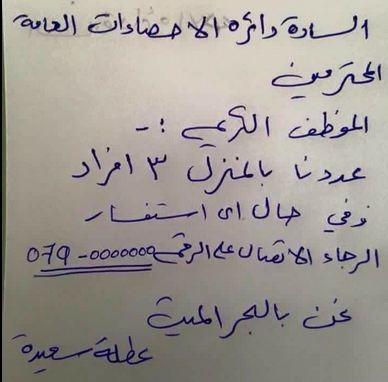 السادة دائرة الاحصاءات العامة
المحترمين
الموظف الكريم :-
عددنا بالمنزل ٣ افراد
وفي حال اى استفسار
الرجاء الاتصال على الرقم 079-0000000
نحن بالبحر الميت
عطلة سعيدة